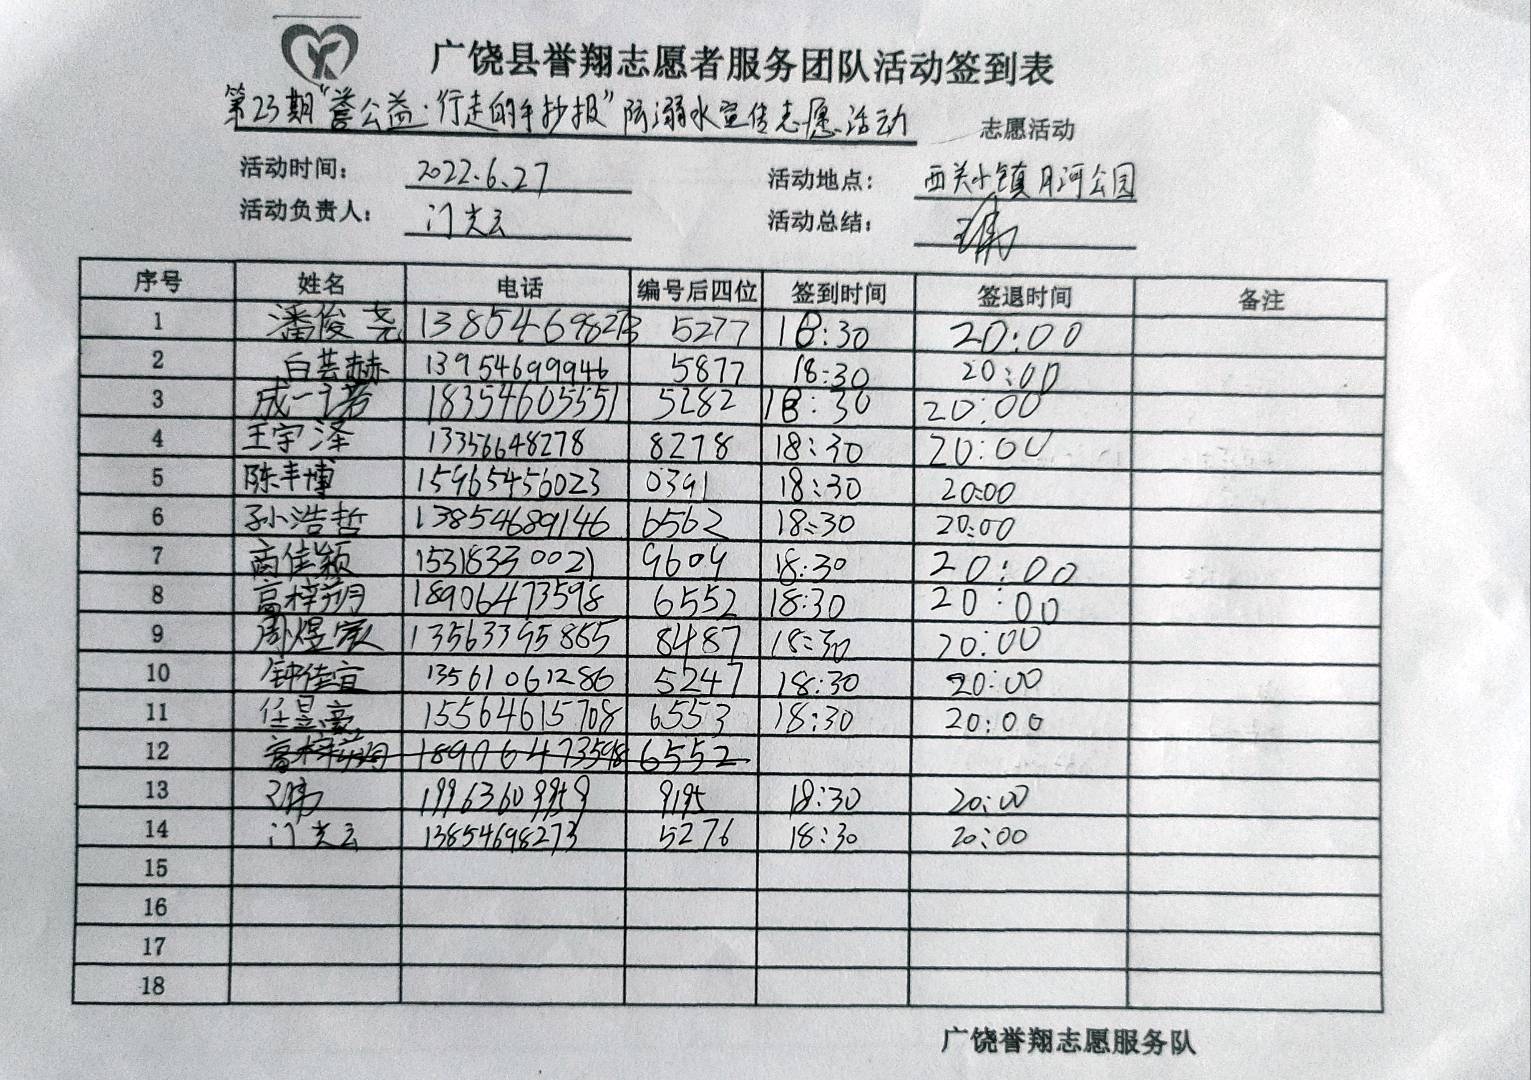 广饶县誉翔志愿者服务团队活动签到表
第23期“誉公益·行走的手抄报”防溺水宣传志愿活动 志愿活动
活动时间： 2022.6.27 活动地点： 西关小镇月河公园
活动负责人： 门光云 活动总结：
序号 姓名 电话 编号后四位 签到时间 签退时间 备注
1 潘俊尧 13854698273 5277 18:30 20:00
2 白芸赫 13954699946 5877 18:30 20:00
3 成一诺 18354605551 5282 18:30 20:00
4 王宇泽 13356648278 8278 18:30 20:00
5 陈丰博 15965456023 0391 18:30 20:00
6 孙浩哲 13854689146 6562 18:30 20:00
7 商佳颖 15318330021 9609 18:30 20:00
8 高梓翔 18906473598 6552 18:30 20:00
9 周煜宸 13563395865 8487 18:30 20:00
10 钟佳宜 13561061286 5247 18:30 20:00
11 任昱亮 15564615708 6553 18:30 20:00
12 高梓翔 18906473598 6552
13 19963609959 9195 18:30 20:00
14 门光云 13854698273 5276 18:30 20:00
15
16
17
18
广饶誉翔志愿服务队